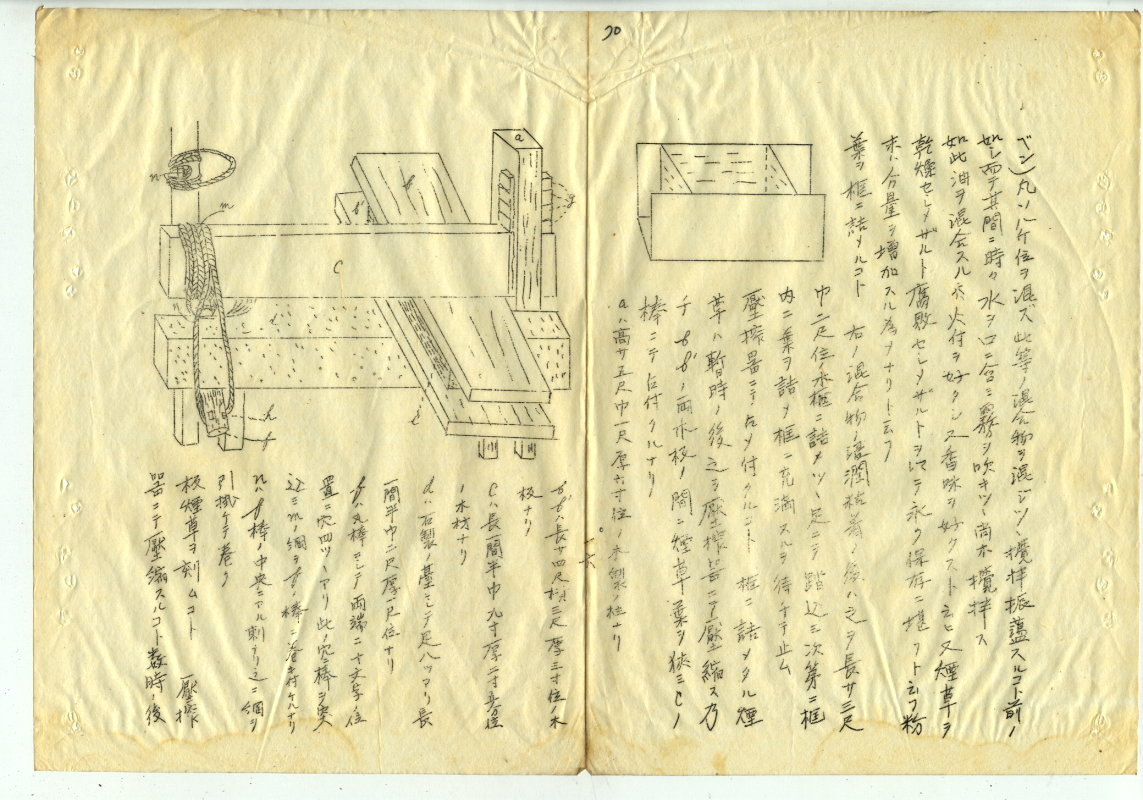 30
ベン)丸ソルケ位ヲ混ズ此等ノ混合物ヲ混ジツヽ攪拌振盪スルコト前ノ
如シ而テ其間ニ時々水ヲ口ニ含ミ霧ヲ吹キツヽ尚木攪拌ス
如此油ヲ混合スルハ火付ヲ好クシ又香味ヲ好クスト云ヒ又煙草ヲ
乾燥セシメザルト腐敗セシメザルトヲ以テ永ク保存ニ堪フト云フ粉
末ハ合量ヲ増加スル為メナリト云フ
葉ヲ框ニ詰メルコト 右ノ混合物ノ湿潤 後ハ之ヲ長サ三尺
巾二尺位ノ木框ニ詰メツヽ足ニテ踏込ミ次第ニ框
内ニ葉ヲ詰メ框ニ充満スルヲ待チテ止ム
壓搾器ニテ占メ付クルコト 框ニ詰メタル煙
草ハ暫時ノ後之ヲ壓搾器ニテ壓縮ス乃
チbb'ノ両木板ノ間ニ煙草葉ヲ狭ミCノ
棒ニテ占付クルナリ
aハ高サ五尺巾一尺厚六寸位ノ木製ノ柱ナリ
bb'ハ長サ四尺横三尺厚三寸位ノ木
板ナリ
Cハ長一間半巾九寸厚二寸 位
ノ木材ナリ
dハ石製ノ臺ニシテ足八ツアリ長
一間半巾二尺厚一尺位ナリ
fハ丸棒ニシテ両端ニ十文字ノ位
置ニ穴四ツヽアリ此ノ穴ニ棒ヲ突
込ミmノ綱ヲfノ棒ニ巻キ付ケルナリ
nハf棒ノ中央ニアル刺ナリ之ニ綱ヲ
引掛ケテ巻ク
板煙草ヲ刻ムコト 壓搾
器ニテ壓縮スルコト数時ノ後
a
b
b'
g
n
m
C
d
h
f